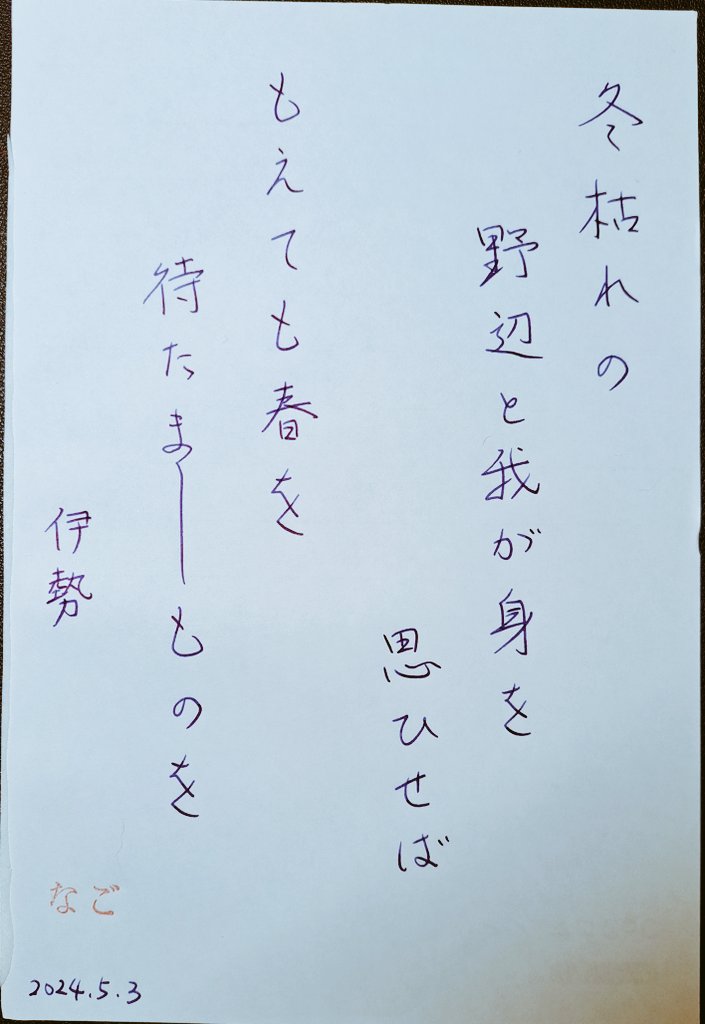 冬枯れの
野辺と我が身を
思ひせば
もえても春を
待たましものを
伊勢
なご
2024.5.3